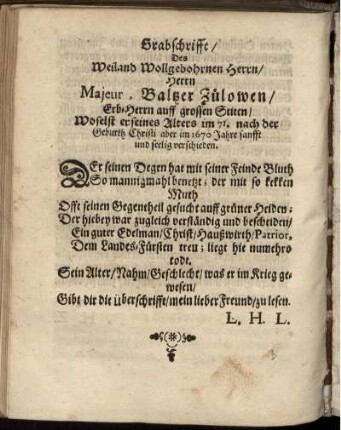 Grabschrifft/
Des
Weiland Wollgebohrnen Herrn/
Herrn
Majeur. Baltzer Zülowen/
Erb-Herrn auff grossen Stiten/
Woselst er seines Alters im 71. nach der
Geburth Christi aber im 1670 Jahre sanfft
und seelig verschieden.
DEr seinen Degen hat mit seiner Feinde Bluth
So mannigmahl benetzt; der mit so kekken
Muth
Offt seinen Gegentheil gesucht auff grüner Heiden;
Der hiebey war zugleich verständig und bescheiden/
Ein guter Edelman/Christ/Haußwirth/Patrior,
Dem Landes-Fürsten treu; liegt hie numehro
todt.
Sein Alter/Nahm/Geschlecht/was er im Krieg ge-
wesen/
Gibt dir die überschriffe/mein lieber Freund/zu lesen.
L. H. L.